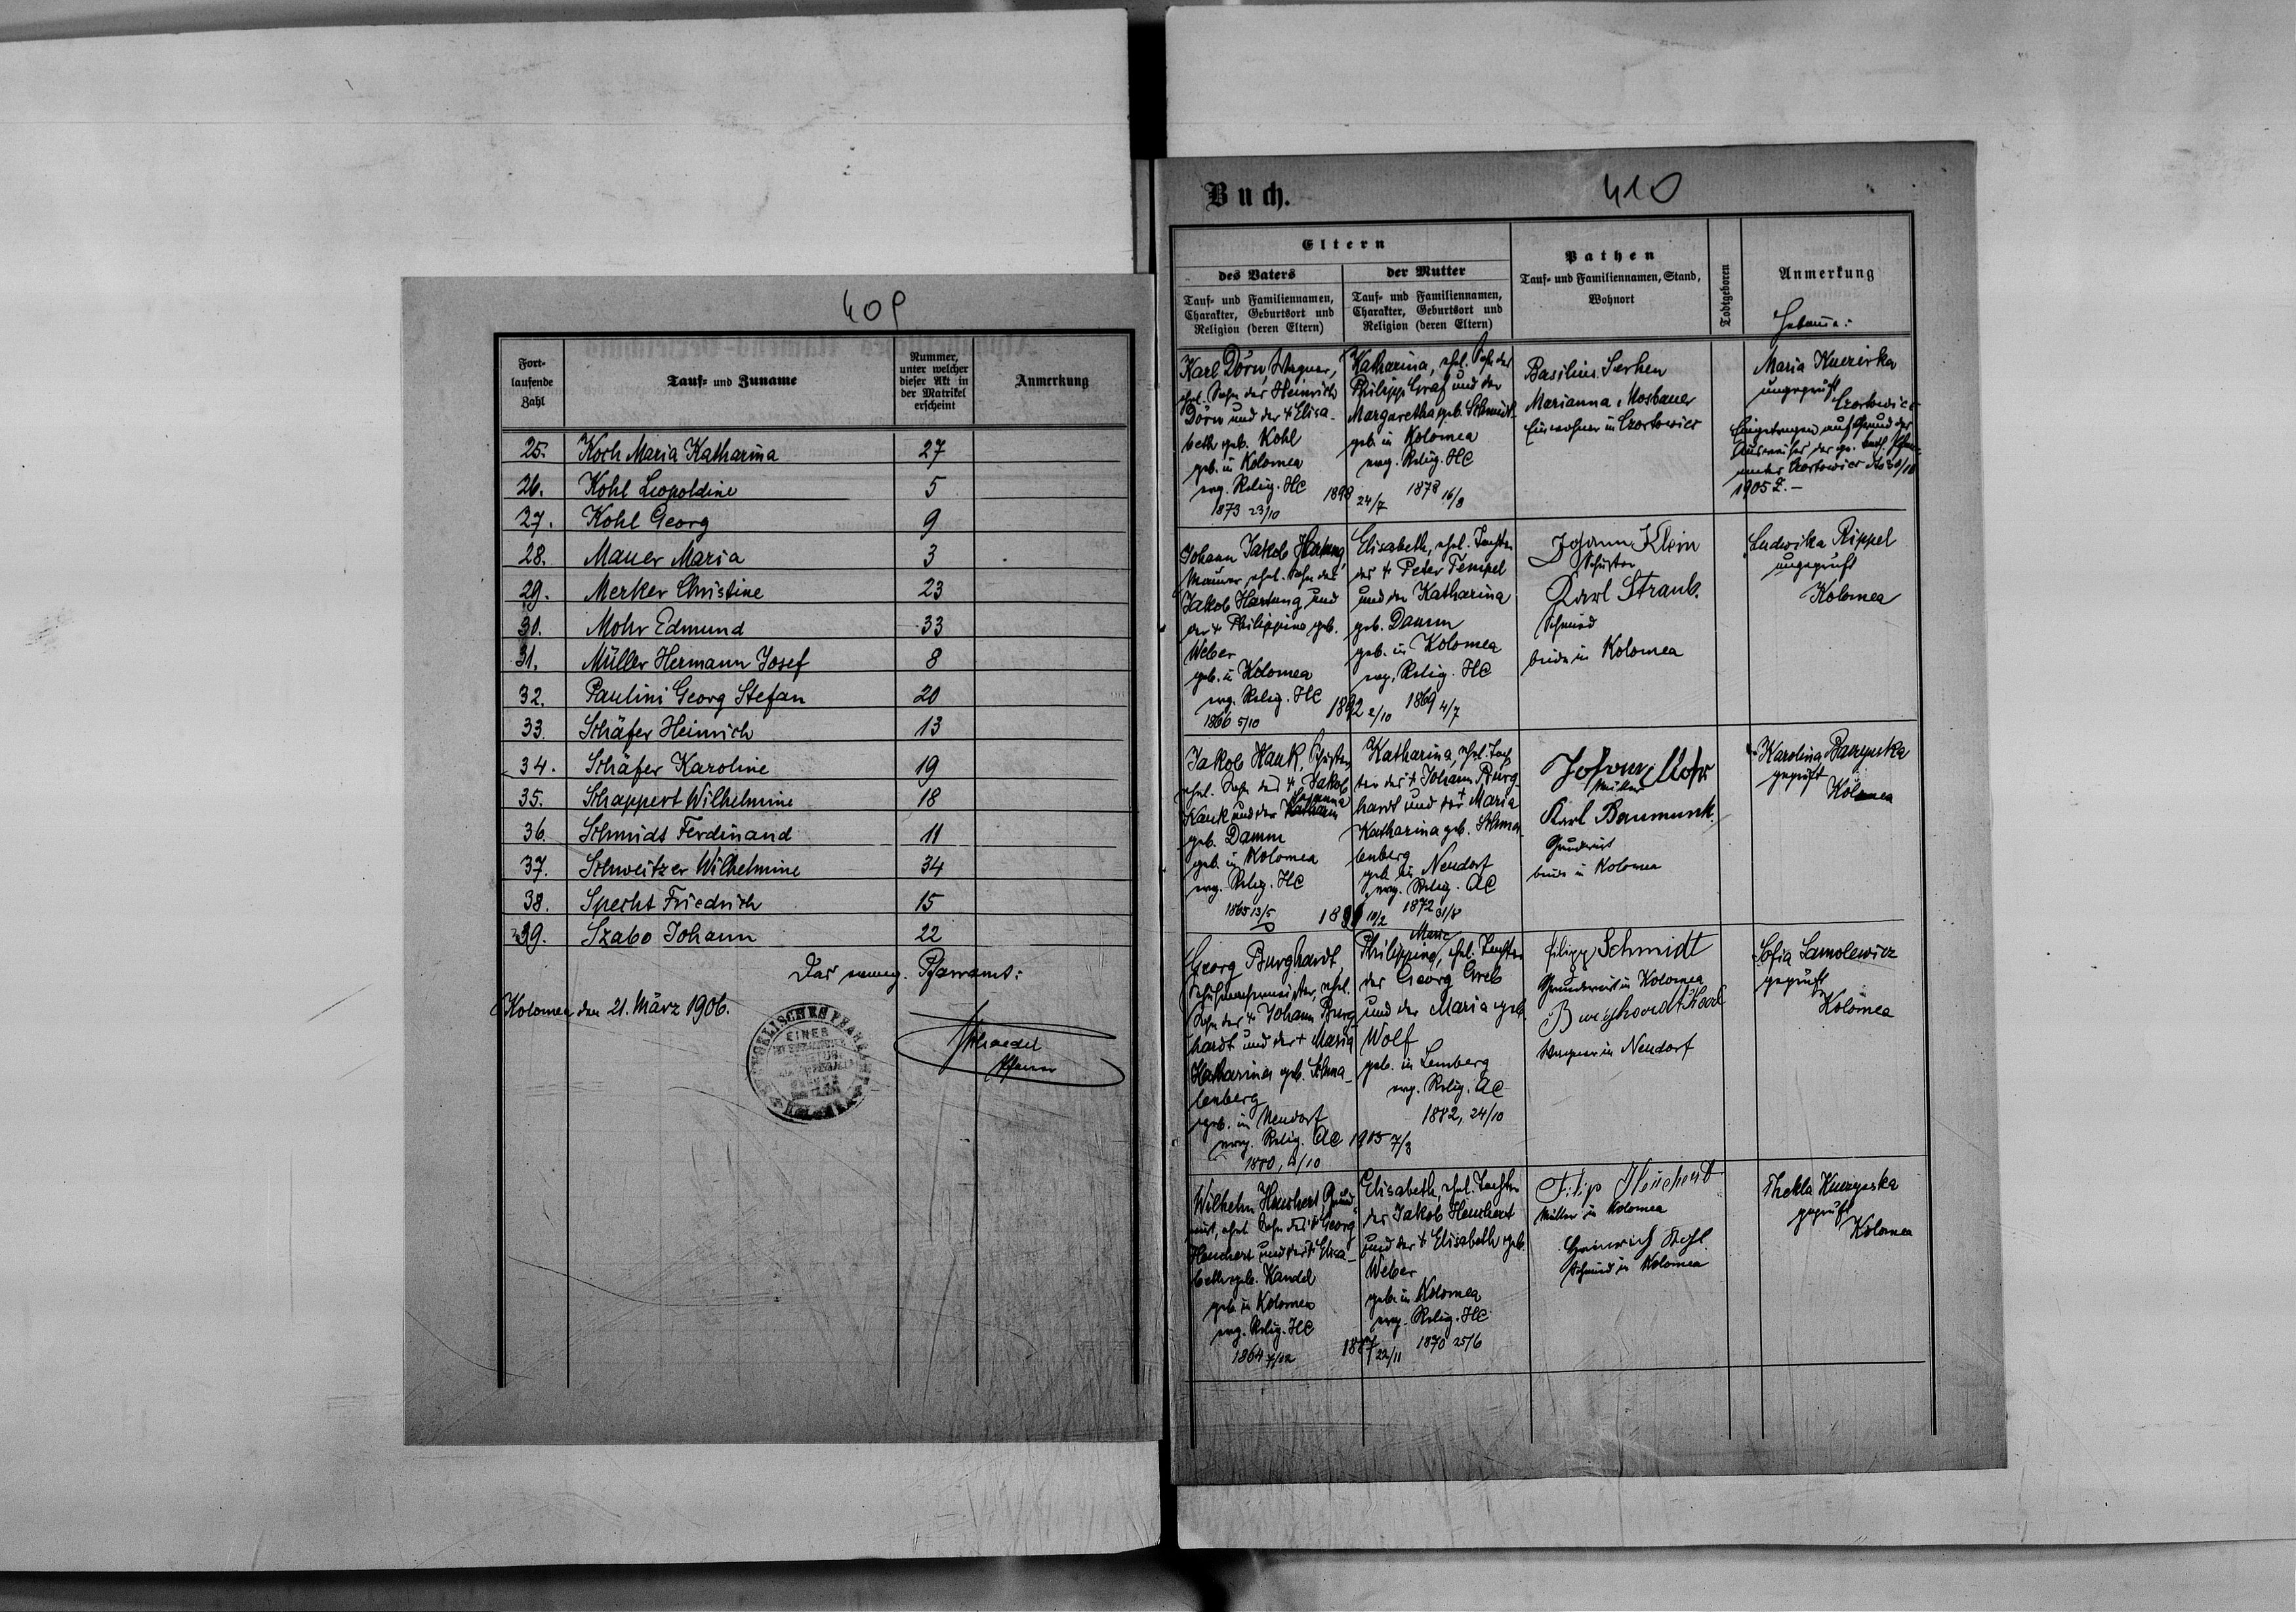 409
Fort-
laufende
Zahl
Tauf- und Zuname
Nummer,
unter welcher
dieser Akt in
der Matrikel
erscheint
Anmerkung
25. Koch Maria Katharina 27
26. Kohl Leopoldine 5
27. Kohl Georg 9
28. Mauer Maria 3
29. Merker Christine 23
30. Mohr Edmund 33
31. Müller Hermann Josef 8
32. Paulini Georg Stefan 20
33. Schäfer Heinrich 13
34. Schäfer Karoline 19
35. Schappert Wilhelmine 18
36. Schmidt Ferdinand 11
37. Schweitzer Wilhelmine 34
38. Specht Friedrich 15
39. Szabo Johann 22
Das evang. Pfarramt:
Kolomea den 21. März 1906.
Pfarrer
Buch.
410
Eltern
des Vaters
Tauf- und Familiennamen,
Charakter, Geburtsort und
Religion (deren Eltern)
der Mutter
Tauf- und Familiennamen,
Charakter, Geburtsort und
Religion (deren Eltern)
Pathen
Tauf- und Familiennamen, Stand,
Wohnort
Todtgeboren
Anmerkung
Hebamme:
Karl Dörn, Wagner,
ehel. Sohn des Heinrich
Dörn und der † Elisa-
beth geb. Kohl
geb. in Kolomea
evg. Relig. HC
1873 23/10
1898 24/7
Katharina, ehel. des
Philipp Graf und der
Margaretha geb. Schmidt
geb. in Kolomea
evg. Relig. HC
1878 16/8
Basilius
Marianna Mosbauer
Einwohner in Czortowiec
Maria
ungeprüft
Czortowiec
Eingetragen auf Grund des
1905 Z. –
Johann Jakob Hartung,
Maurer, ehel. Sohn des
Jakob Hartung und
der † Philippine geb.
Weber
geb. in Kolomea
evg. Relig. HC
1866 5/10
1892 2/10
Elisabeth, ehel. Tochter
des † Peter Tempel
und der Katharina
geb. Damm
geb. in Kolomea
evg. Relig. HC
1869 4/7
Johann Klein
Schuster
Karl Straub.
Schmied
beide in Kolomea
Ludwika Rippel
ungeprüft
Kolomea
Jakob Kauk, Schuster
ehel. Sohn des † Jakob
Kauk und der
geb. Damm
geb. in Kolomea
evg. Relig. HC
1865 13/5
10/2
Katharina, ehel. Toch
ter des † Johann Burg-
hardt und der † Maria
Katharina geb. Schma-
lenberg
geb. in Neudorf
evg. Relig. AC
1872 31/8
Johann Mohr
Karl Baumunk.
Grundwirt
beide in Kolomea
Karolina
geprüft
Kolomea
Georg Burghardt,
Schuhmachermeister, ehel.
Sohn des † Johann Burg-
hardt und der † Maria
Katharina geb. Schma-
lenberg
geb. in Neudorf
evg. Relig. AC
1905 7/3
Marie
Philippine, ehel. Tochter
des Georg Greb
und der Maria geb.
Wolf
geb. in Lemberg
evg. Relig. AC
1882, 24/10
Filipp Schmidt
Grundwirt in Kolomea
Wagner in Neudorf
Sofia Samolewicz
geprüft
Kolomea
Wilhelm Heuchert, Grund-
wirt, ehel. Sohn des † Georg
Heuchert und der † Elisa-
beth geb. Kandel
geb. in Kolomea
evg. Relig. HC
1887 22/11
Elisabeth, ehel. Tochter
des Jakob Heuchert
und der † Elisabeth geb.
Weber
geb. in Kolomea
evg. Relig. HC
1870 25/6
Filip Heuchert
Müller in Kolomea
Heinrich Kohl
Schmied in Kolomea
Thekla
geprüft
Kolomea